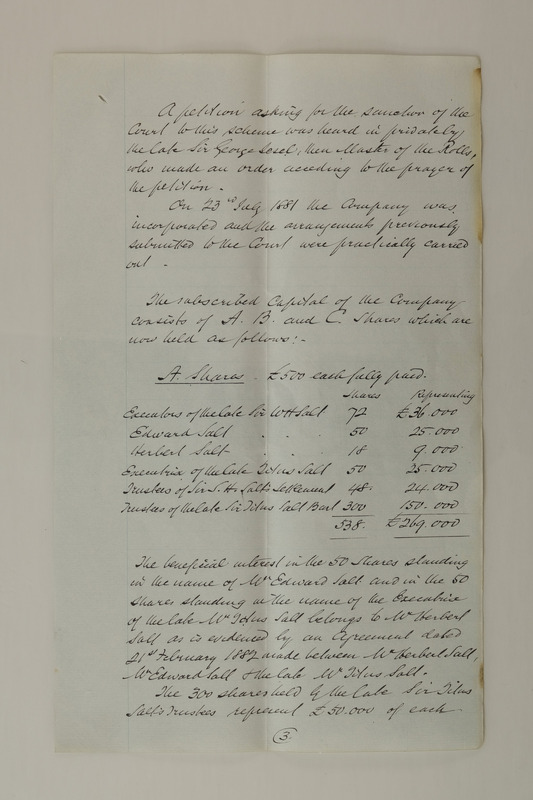 A petition asking for the sanction of the
Court to this scheme was heard in privately
the late Sir George Jesel, then Master of the Rolls,
who made an order acceding to the prayer of
the petition -
On 23rd July 1881 the Company was
incorporated and the arrangements previously
submitted to the Court were practically carried
out -
The subscribed Capital of the Company
consists of A. B. and C. Shares which are
now held as follows:-
A. Shares - £500 each fully paid.
Shares Representing
Executors of the late Sir W H Salt 72 £36.000
Edward Salt . . . 50 25.000
Herbert Salt . . . 18 9.000
Executrix of the late Titus Salt 50 25.000
Trustees of Sir S. H. Salt's Settlement 48. 24.000
Trustees of the late Sir Titus Salt Bart 300 150.000
538. £269.000
The beneficial interest in the 50 Shares standing
in the name of Mr Edward Salt and in the 50
shares standing in the name of the Executrix
of the late Mr Titus Salt belongs to Mr Herbert
Salt as is evidenced by an Agreement dated
21st February 1887 made between Mr Herbert Salt,
Mr Edward Salt & the late Mr Titus Salt.
The 300 shares held by the late Sir Titus
Salt's Trustees represent £50.000 of each
3.